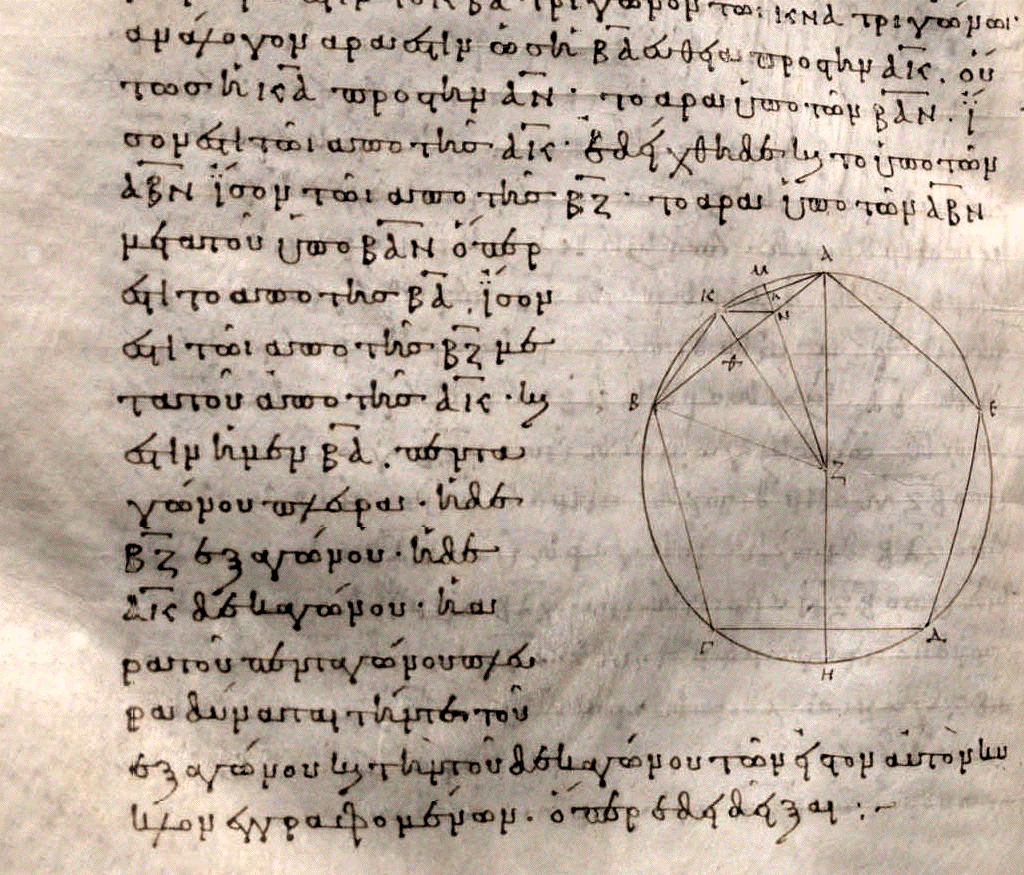 ΚΒΑ τριγωνον τωι ΚΝΑ τριγώνωι·
ἀνάλογον ἄρα ἐστὶν ὡς ἡ ΒΑ ἐυθεῖα πρὸς τὴν ΑΚ. οὕ
τως ἡ ΚΑ πρὸς τὴν ΑΝ· τὸ ἄρα ὑπὸ τῶν ΒΑΝ. ἴ
σον ἐστὶ τῶι ἀπὸ τῆς ΑΚ· ἐδείχθη δὲ καὶ τὸ ὑπὸ τῶν
ΑΒΝ ἴσον τῶι ἀπὸ τῆς ΒΖ· τὸ ἄρα ὑπὸ τῶν ΑΒΝ
μετὰ τοῦ ὑπὸ ΒΑΝ ὅπερ
ἐστὶ τὸ ἀπὸ τῆς ΒΑ. ἴσον
ἐστὶ τῶι ἀπὸ τῆς ΒΖ με
τὰ τοῦ ἀπὸ τῆς ΑΚ· καὶ
ἐστιν ἡ μὲν ΒΑ. πεντα
γώνου πλευρά· ἡ δὲ
ΒΖ ἑξαγώνου· ἡ δὲ
ΑΚ δεκαγώνου· ἡ ἄ
ρα τοῦ πενταγώνου πλευ
ρὰ δύναται τήν τε τοῦ
ἑξαγώνου καὶ τὴν τοῦ δεκαγώνου τῶν εἰς τὸν αὐτὸν κύ
κλον ἐγγραφομένων· ὅπερ ἔδει δεῖξαι :~
Α
Μ
Κ
Λ
Ν
Θ
Β
Ε
Ζ
Γ
Δ
Η